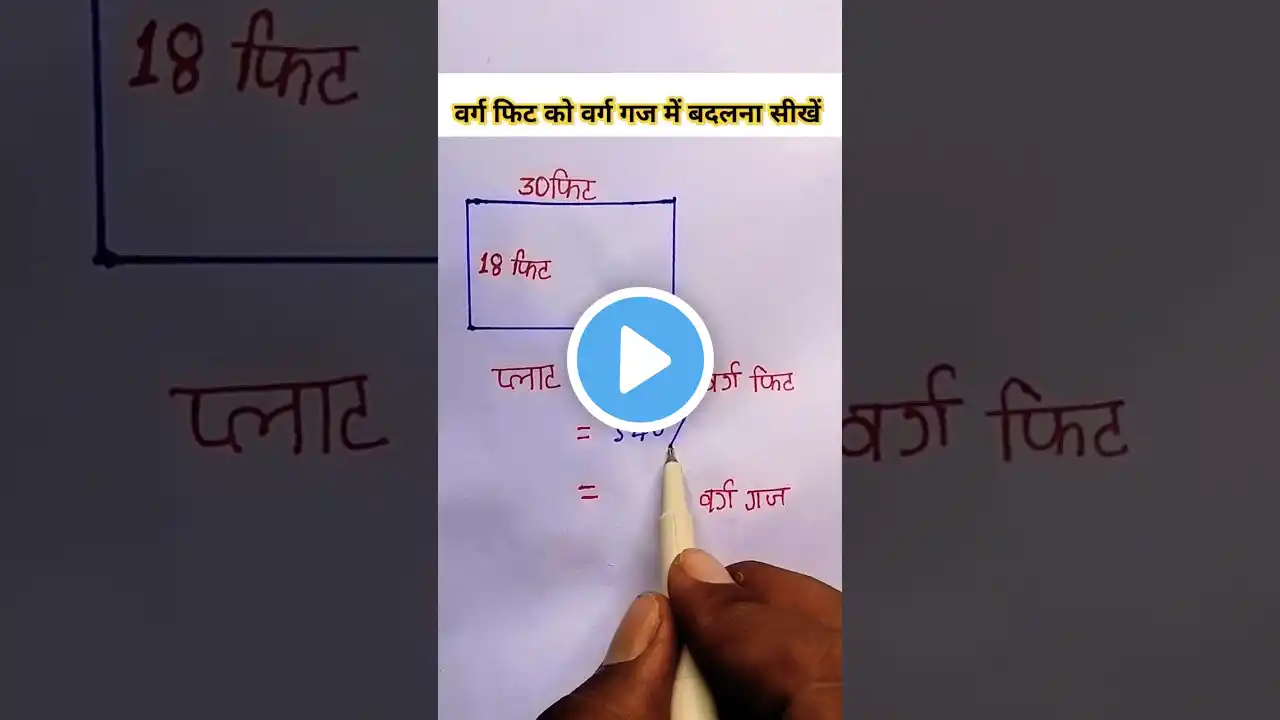 वर्ग फिट को वर्ग गज में बदलना सीखें
30फिट
18 फिट
प्लाट वर्ग फिट
=
= वर्ग गज
18 फिट
प्लाट
वर्ग फिट